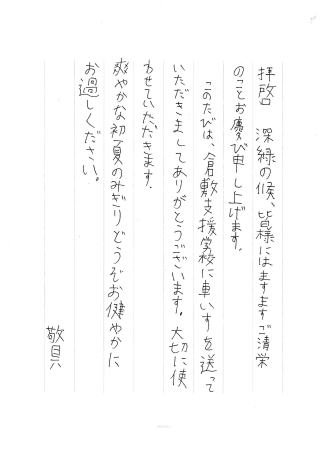 拝啓　深緑の候、皆様にはますますご清栄
のことお慶び申し上げます。
このたびは、倉敷支援学校に車いすを送って
いただきましてありがとうございます。大切に使
わせていただきます。
爽やかな初夏のみぎりどうぞお健やかに
お過しください。
敬具